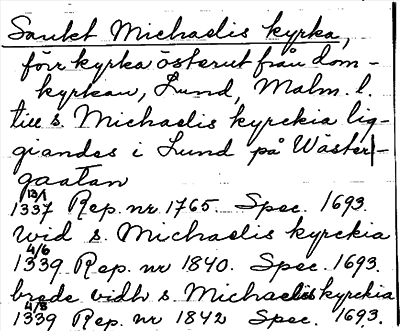 Sankt Michaelis kyrka,
förr kyrka österut från dom-
kyrkan, Lund, Malm. l.
till s. Michaelis kyrckia lig-
giandes i Lund på Wäster-
gaatan
13/1
1337 Rep. nr 1765. Spec. 1693.
wid s. Michaelis kyrckia
4/6
1339 Rep. nr 1840. Spec. 1693.
brede vidh s Michaelis kyrckia
4/8
1339 Rep. nr 1842 Spec. 1693.